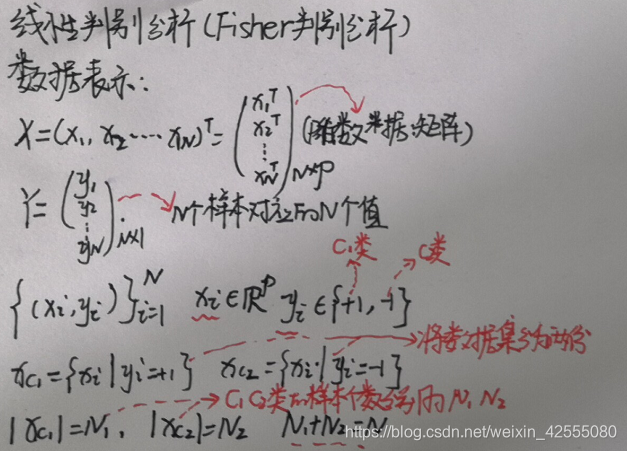 线性判别分析(Fisher判别分析)
数据表示:
X=(x₁, x₂ ····· x_N)ᵀ= (x₁ᵀ x₂ᵀ ⋮ x_Nᵀ) N×p 数据矩阵)
Y= (y₁ y₂ ⋮ y_N) N×1 N个样本对应的N个值
C₁类 C类
{(xᵢ, yᵢ)}ᵢ₌₁ᴺ xᵢ∈ℝᵖ yᵢ∈{+1, -1}
将数据集分为两份
x_C₁={xᵢ|yᵢ=+1} x_C₂={xᵢ|yᵢ=-1}
C₁ C₂类的样本个数分别为N₁ N₂
|x_C₁|=N₁, |x_C₂|=N₂ N₁+N₂=N
https://blog.csdn.net/weixin_42555080